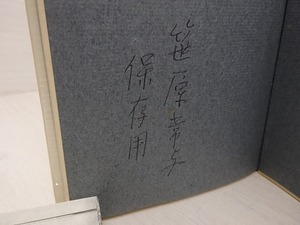 笹原常与
保存用